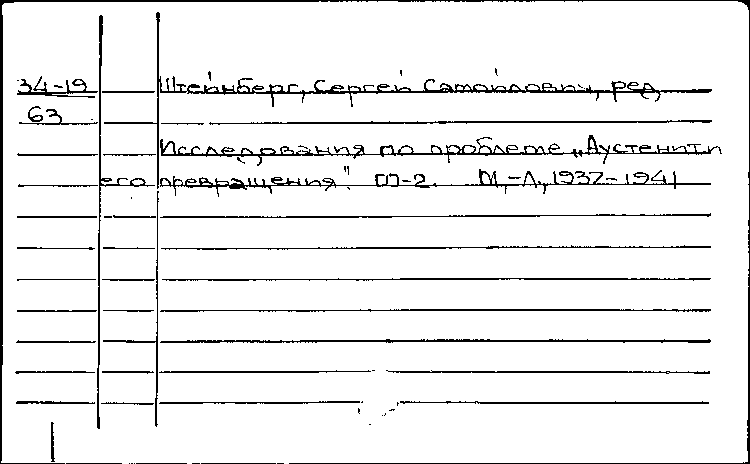 34-19 Штейнберг, Сергей Самойлович, ред.
63
Исследования по проблеме „Аустенит и
его превращения". [1]-2. М.-Л., 1937-1941